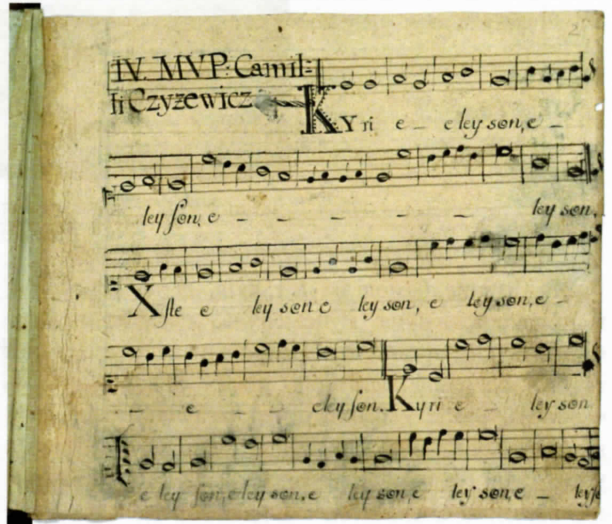 IV. MVP. Camil-
li Czyzewicz
KYri e – eleyson, e –
leyson, e – – – – – leyson.
Xste e leyson e leyson, e leyson, e –
– e – – eleyson. Kyri e – leyson
e leyson, eleyson, e leyson, e leyson, e – leys